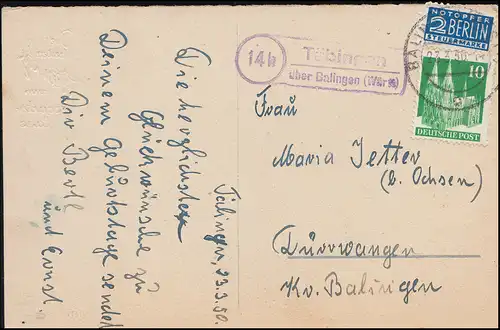 Die herzlichsten
Glückwünsche zu
Deinem Geburtstage sendet
Dir Bertl
und Ernst.
23.3.50.
14b
Tübingen
über Balingen (Württ)
NOTOPFER
2 BERLIN
STEUERMARKE
BALIN
10
DEUTSCHE POST
Frau
Maria Jetter
(z. Ochsen)
Dürrwangen
Kr. Balingen